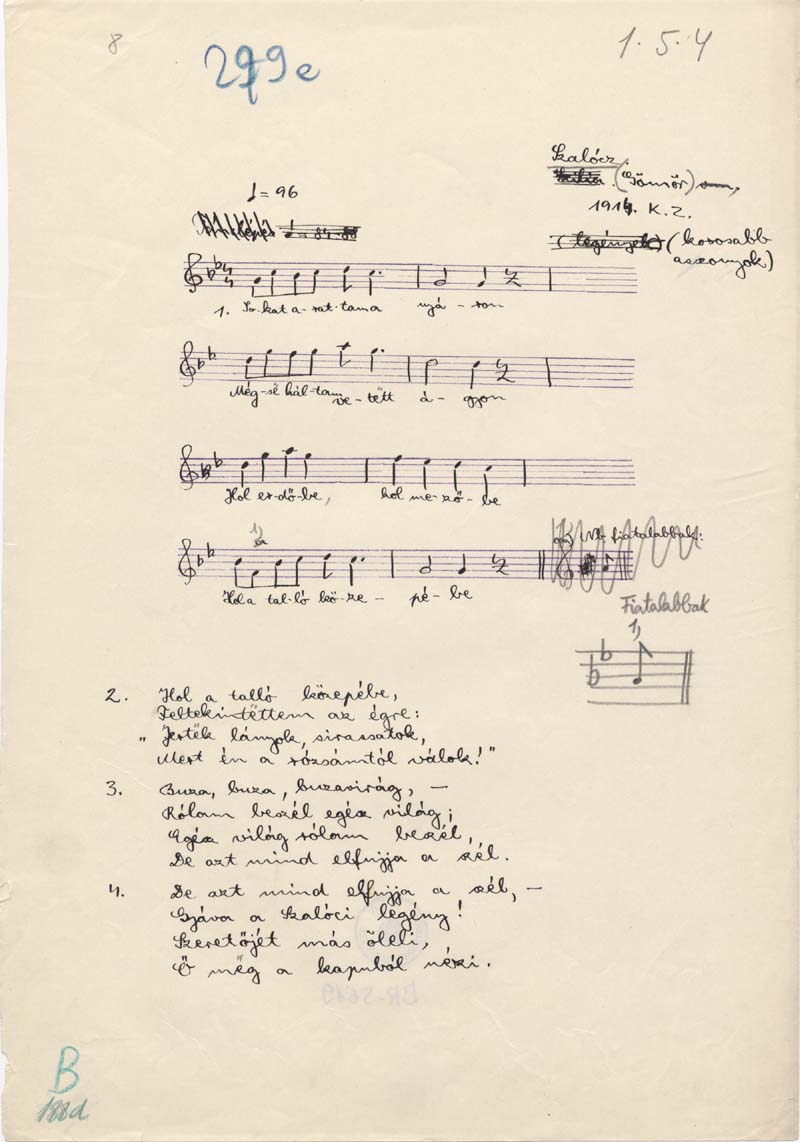 8
1.5.4
299e
Szalócz.
(Gömör)
♩= 96
1914. K.Z.
(legények) (korosabb
asszonyok)
1. So-kat a-rat-tam a nyá-ron
Még-së hál-tam ve-tëtt á-gyon
Hol er-dő-be, hol me-ző-be
1)
Hol a tal-ló kö-ze-pé-be
fiatalabbak:
Fiatalabbak
1)
2. Hol a talló közepébe,
Feltekintëttem az égre:
„Jertëk lányok, sirassatok,
Mert én a rózsámtól válok!"
3. Buza, buza, buzavirág, —
Rólam beszél egész világ;
Egész világ rólam beszél,
De azt mind elfujja a szél.
4. De azt mind elfujja a szél, —
Gyáva a szalóci legény!
Szeretőjét más öleli,
Ő mëg a kapuból nézi.
BR-5619
B
188d